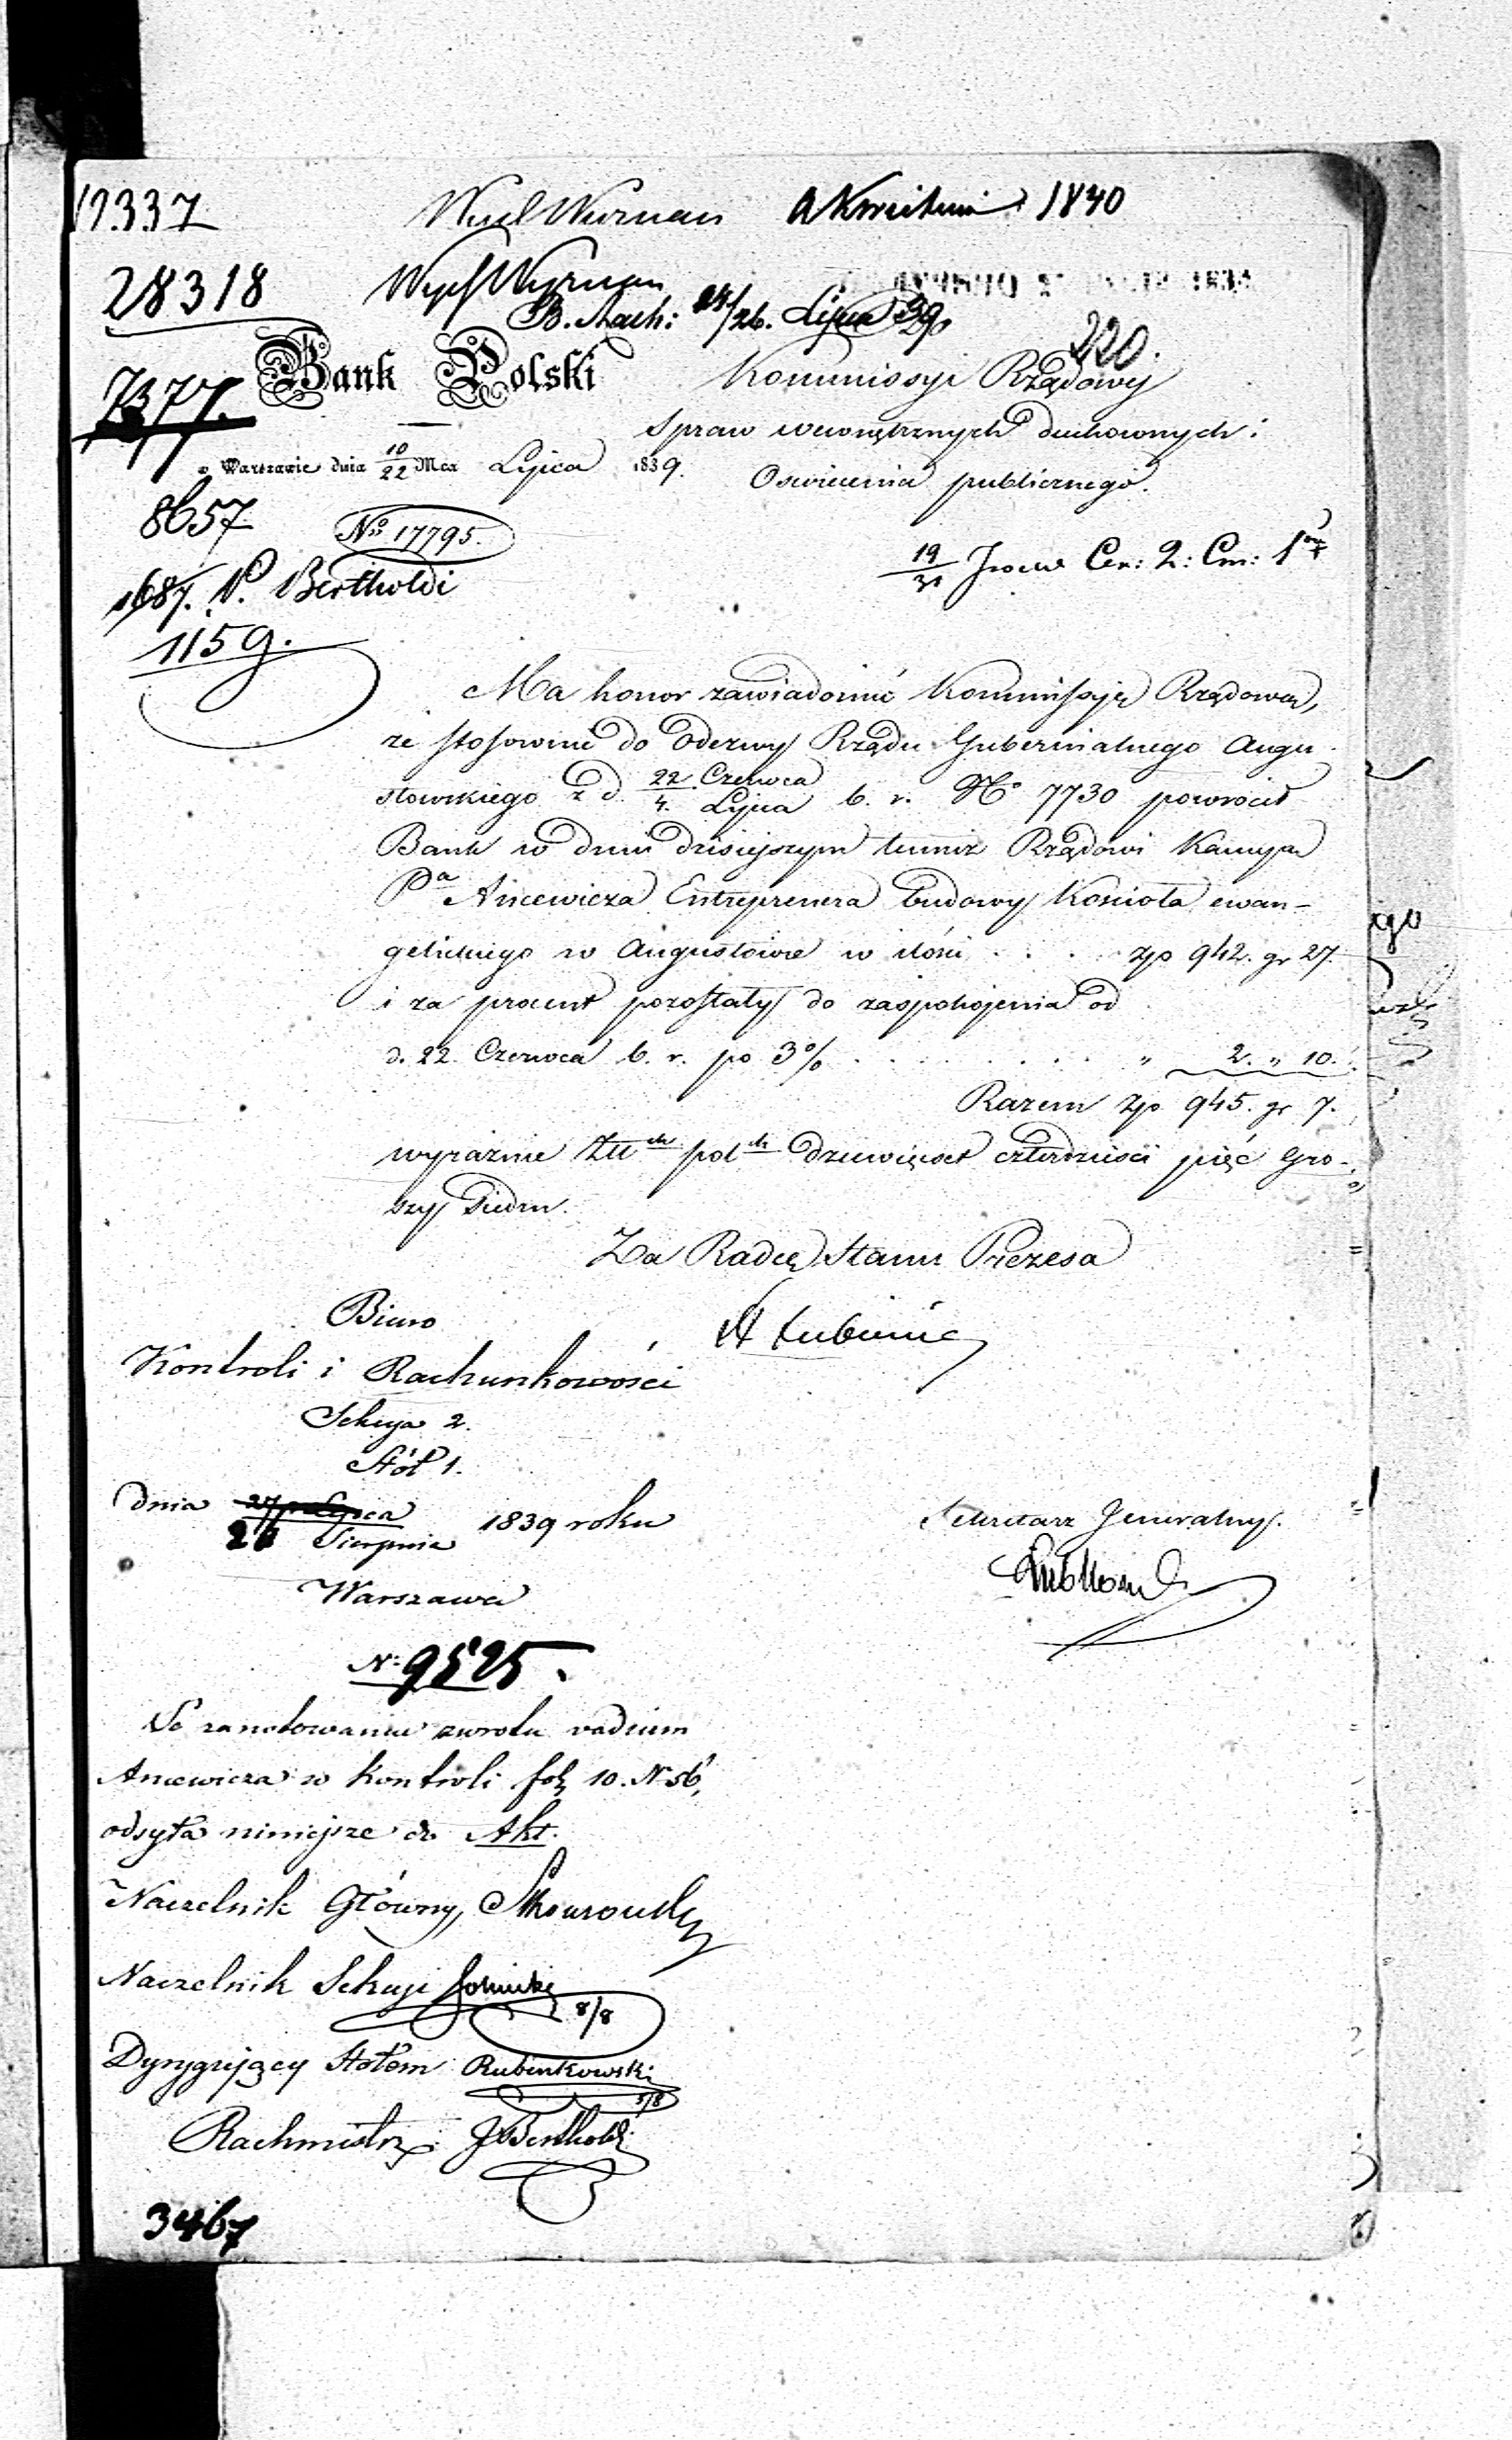 12337
Wyd Wyznań a Kwietnia 1840
28318
Wydz Wyznań
B. Rach: 14/26. Lipca 39
220.
7377.
Bank Polski
Kommissyi Rządowéj
Spraw wewnętrznych duchownych i
Oswiecenia publicznego.
w Warszawie dnia 10/22 Mca Lipca 1839.
8657
No 17795.
19/31
1687. P. Bertholdi
1159.
Ma honor zawiadomić Kommissyę Rządową,
że stosownie do Odezwy Rządu Gubernialnego Augu
stowskiego z d. 22 Czerwca / 4. Lipca b. r. No 7730 powrócił
Bank w dniu dzisiejszym temuż Rządowi Kaucyą
Pa Ancewicza Entreprenera budowy Kościoła ewan-
gelickiego w Augustowie w ilości . . . . zp 942. gr 27.
i za procent pozostały do zaspokojenia od
d. 22 Czerwca b. r. po 3% . . . . . . . . . „ 2. „ 10.
Razem zp 945. gr 7.
wyraźnie Złch polch dziewięćset czterdzieści pięć Gro-
szy Siedm.
Za Radcę Stanu Prezesa
Biuro
Kontroli i Rachunkowości
Sekcya 2.
Stół 1.
dnia 27 Lipca / Sierpnia 1839 roku
Sekretarz Jeneralny.
Warszawa
N: 9525.
Po zanotowaniu zwrotu vadium
Ancewicza w Kontroli fol. 10. N 56,
odsyła niniejsze do Akt.
Naczelnik Główny,
Naczelnik Sekcyi
8/8
Dyrygujący Stołem Rubinkowski
8/8
Rachmistrz JBertholdi
3467